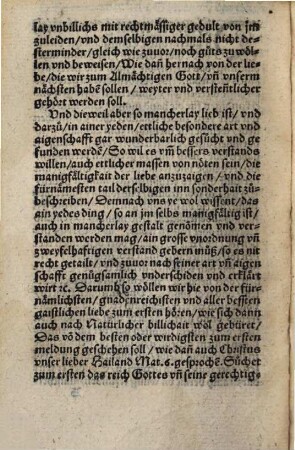 lay vnbillichs mit rechtmässiger gedult von jm
zuleiden/vnd demselbigen nachmals nicht de-
sterminder/gleich wie zuuor/noch güts zu wöl-
len vnd beweisen/Wie dañ hernach von der lie-
be/die wir zum Almächtigen Gott/vñ vnserm
nächsten habē sollen/weyter vnd verstentlicher
gehört werden soll.
Vnd dieweil aber so mancherlay lieb ist/vnd
darzů/in ainer yeden/ettliche besondere art vnd
aigenschafft gar wunderbarlich gesücht vnd ge
funden werdē/So wil es vm̃ bessers verstands
willen/auch etlicher massen von nöten sein/die
manigfältigkait der liebe anzuzaigen/vnd die
fürnämesten tail derselbigen inn sonderhait zů-
beschreiben/Demnach vns ye wol wissent/das
ain yedes ding/so an jm selbs manigfältig ist/
auch in mancherlay gestalt genom̃en vnd ver-
standen werden mag/ain grosse vnordnung vñ
zweyfelhafftigen verstand gebern můß/so es nit
recht getailt/vnd zuuor nach seiner art vñ aigen
schafft genůgsamlich vnderschiden vnd erklärt
wirt ꝛc. Darumb so wöllen wir hie von der für-
nämlichsten/gnadenreichisten vnd aller besten
gaistlichen liebe zum ersten hören/wie sich dann
auch nach Natürlicher billichait wol gebüret/
Das vō dem besten oder wirdigsten zum ersten
meldung geschehen soll/wie dañ auch Christus
vnser lieber Hailand Mat. 6. gesprochē. Süchet
zum ersten das reich Gottes vñ seine gerechtig-